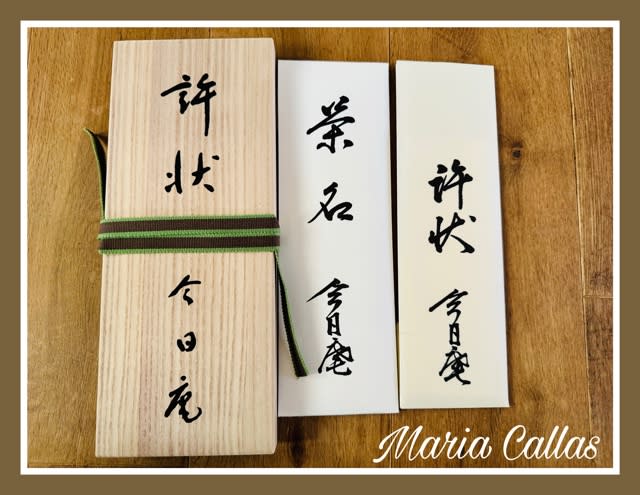 許状 今日庵
茶名 今日庵
許状 今日庵
Maria Callas